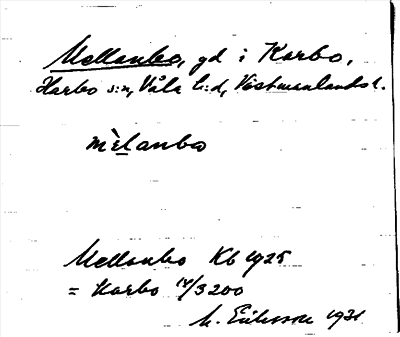 Mellanbo, gd i Harbo,
Harbo s:n, Våla h:d, Västmanlands l.
mèlanbo
Mellanbo Kb 1925
= Harbo 14/3200
M. Eriksson 1931